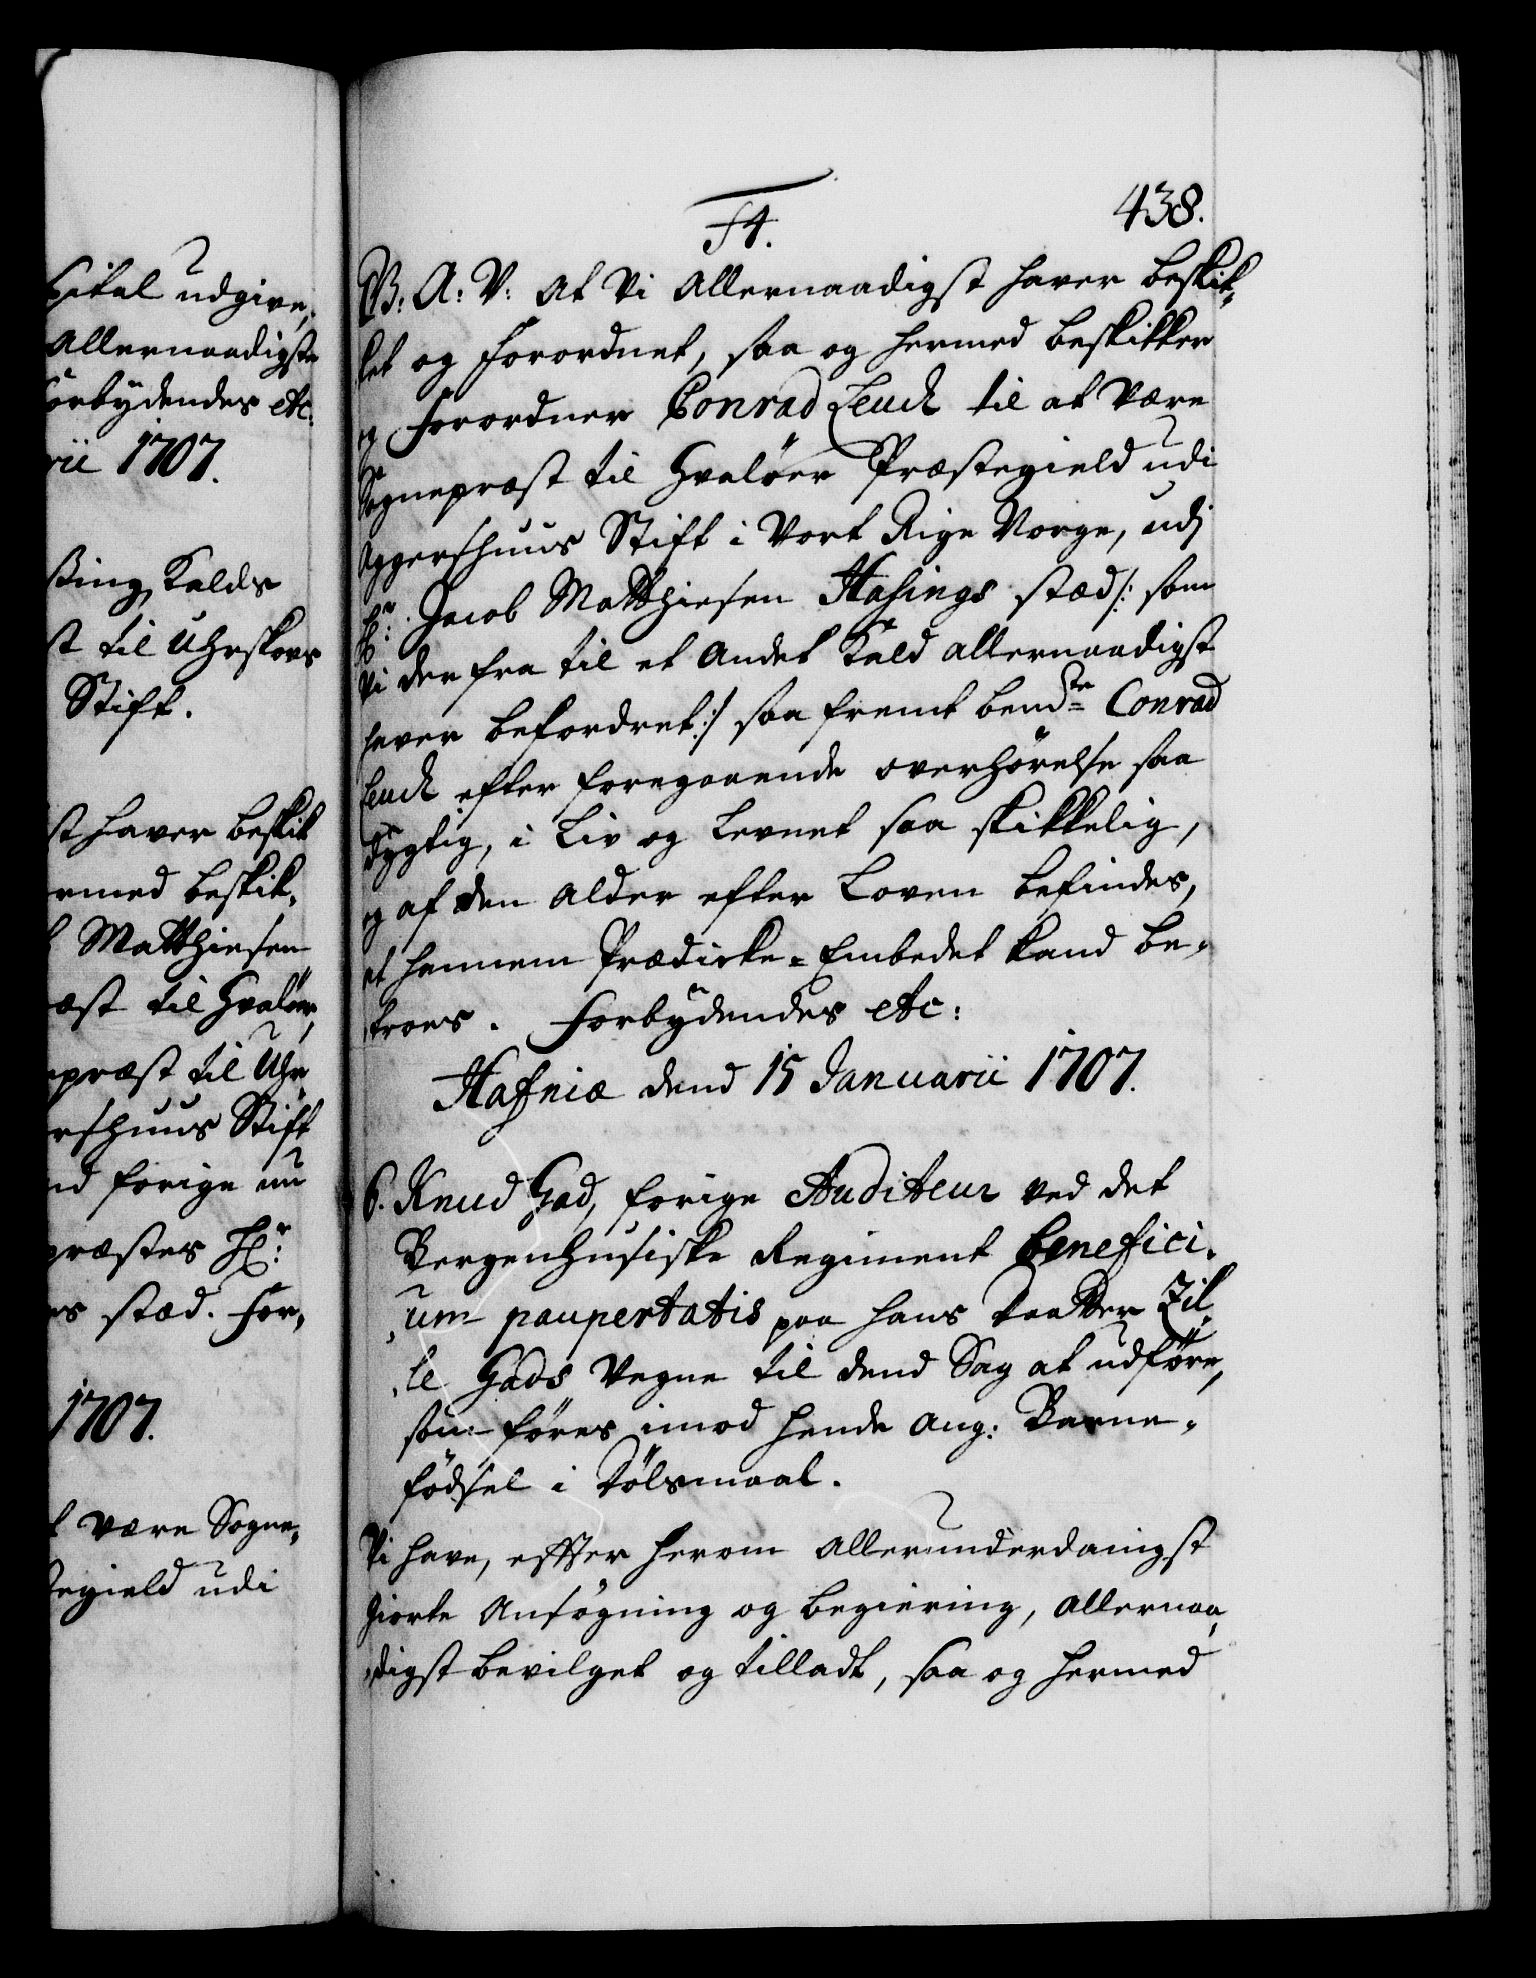 pital udgive,
Allernaadigste
forbydendes etc:
rii 1707.
sing, Kalds
st til Uhrskous
Stift.
st haver beskik
ermed beskik,
Matthiesen
æst til Hvaløer,
epræst til Uhr
ershuus Stift
nd forige nu
præstes Hr:
es stæd. For,
1707.
t være Sogne,
tegield udi
F4.
438.
G: A: V: At Vi Allernaadigst haver beskik,
ket og forordnet, saa og hermed beskikker
og forordner Conrad Leuch til at være
Sognepræst til Hvaløer Præstegield udi
Aggershuus Stift i Vort Rige Norge, udj
Hr: Jacob Matthiesen Hasings stæd /: som
Vi der fra til et Andet Kald allernaadigst
haver befordret :/ saa fremt bemdte Conrad
Leuch efter foregaaende overhørelse saa
dygtig, i Liv og Levnet saa skikkelig,
og af den Alder efter Loven befindes,
at hannem Prædicke-Embedet kand be,
troes. Forbydendes etc:
Hafniæ dend 15 Januarii 1707.
6. Knud Gad, forige Auditeur ved det
Bergenhusiske Regiment benefici,
um paupertatis paa hans Daatter Zil,
le Gads Vegne til dend Sag at udføre,
som føres imod hende ang: Barne,
fødsel i Dølsmaal.
Vi have, effter herom allerunderdanigst
giorte Ansøgning og begiering, allernaa,
digst bevilget og tilladt, saa og hermed